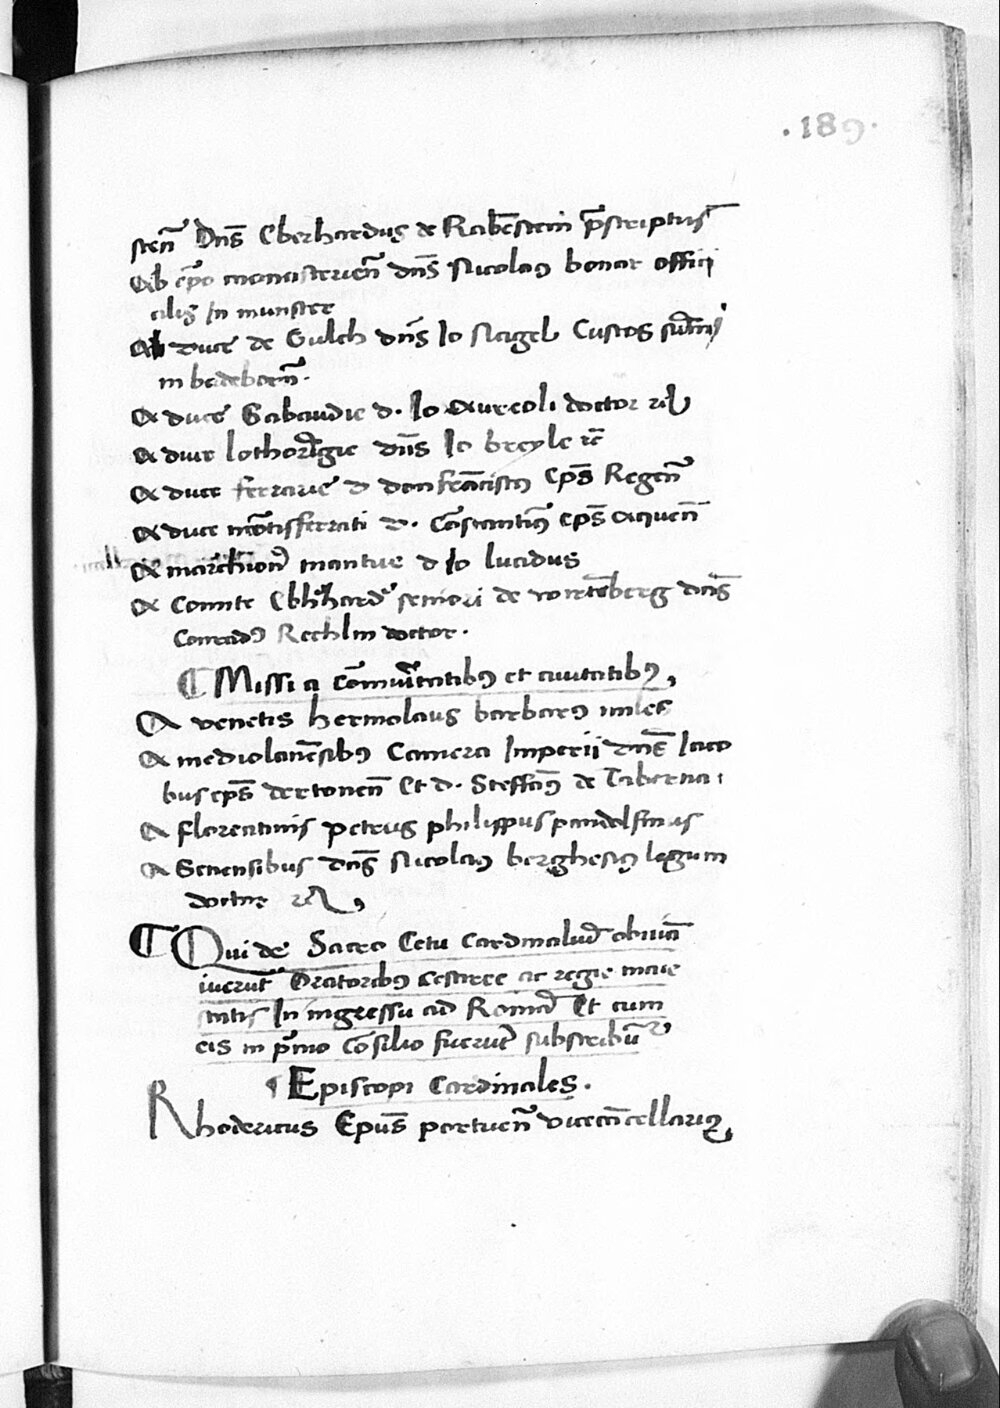 .189.
steñ Dñs Eberhardus de Rabēstein p̄scriptus
Ab ep̄o monasterieñ dñs Nicolaꝰ bonar offici
alis In munster
Ab duce de Gulch dñs Io Nagel Custos
in badeborñ.
A duce Sabaudie d. Io Aureoli doctor
A duce lothorīgie dñs Io breyle
A duce ferrarie d donfrāciscꝰ Ep̄s Regeñ
A duce mōtisferrati d. Cōstantiꝰ ep̄s Aqueñ
A marchioñ mantue d Io lucidus
A Comite Ebhard seniori de wirtēberg dñs
Conradꝰ Rechlin doctor.
¶ Missi a cōmunitatibꝰ et civitatibꝰ,
A venetis hermolaus barbarꝰ miles
A mediolanēsibꝰ Camera Imperii dñs Iaco
bus ep̄s dertoneñ Et d. Steffāꝰ de Taberna
A florentinis petrus philippus pandolfinus
A Senensibus dñs Nicolaꝰ berghesiꝰ legum
doctor
¶ Qui de Sacro Cetu Cardinaliū obviā
iverūt Oratoribꝰ Cesaree ac regie maie
statis In ingressu ad Romā Et cum
eis in p̄mo Cōsilio fuerūt subscribūt
¶ Episcopi Cardinales.
Rhodericus Ep̄us portueñ vicecācellariꝰ,